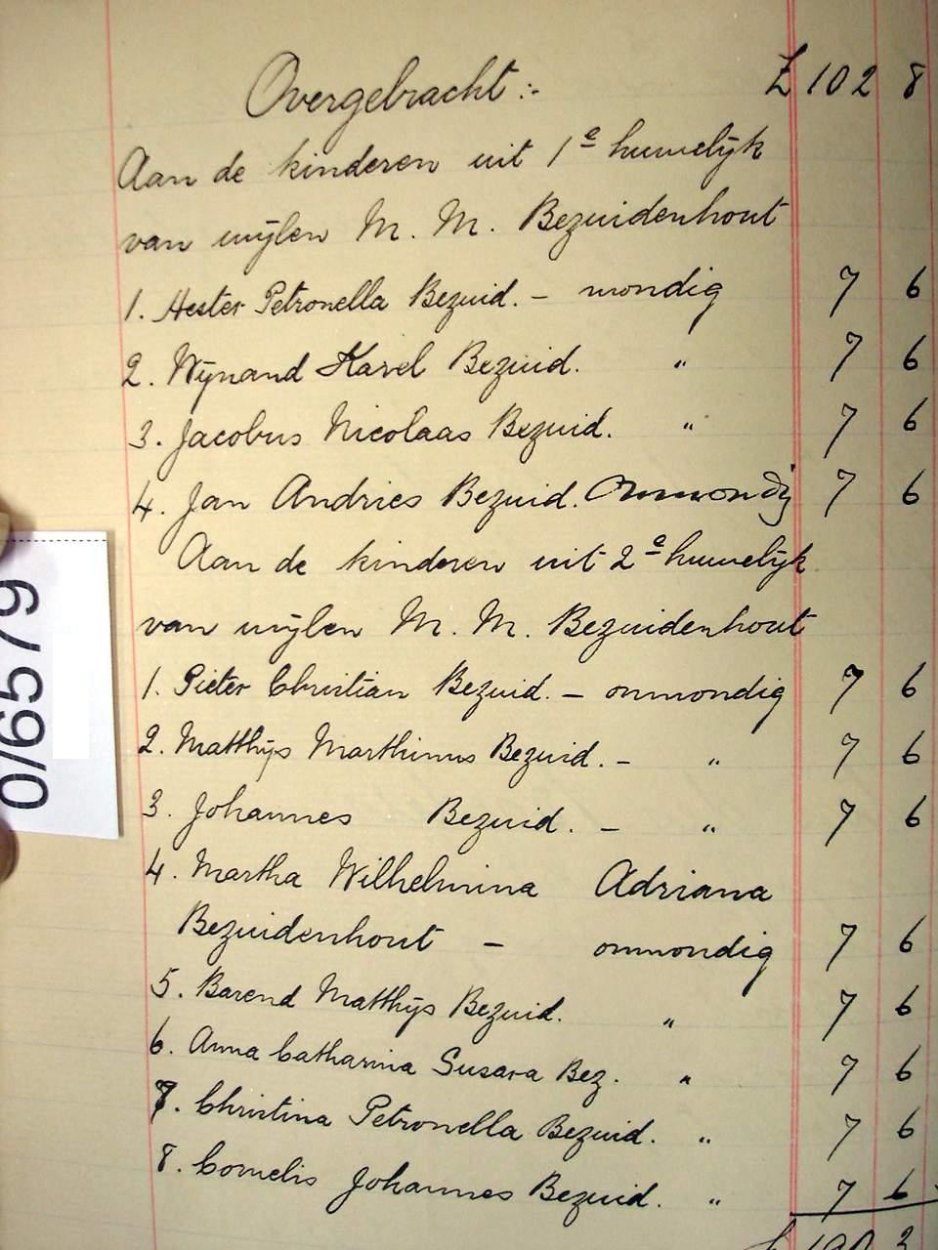 Overgebracht :- £ 102 8
Aan de kinderen uit 1e huwelijk
van wijlen M. M. Bezuidenhout
1. Hester Petronella Bezuid. - mondig 7 6
2. Wijnand Karel Bezuid. " 7 6
3. Jacobus Nicolaas Bezuid. " 7 6
4. Jan Andries Bezuid. Onmondig 7 6
Aan de kinderen uit 2e huwelijk
van wijlen M. M. Bezuidenhout
1. Pieter Christian Bezuid. - onmondig 7 6
2. Matthijs Marthinus Bezuid. - " 7 6
3. Johannes Bezuid. - " 7 6
4. Martha Wilhelmina Adriana
Bezuidenhout - onmondig 7 6
5. Barend Matthijs Bezuid. " 7 6
6. Anna Catharina Susara Bez. " 7 6
7. Christina Petronella Bezuid. " 7 6
8. Cornelis Johannes Bezuid. " 7 6
0/6579